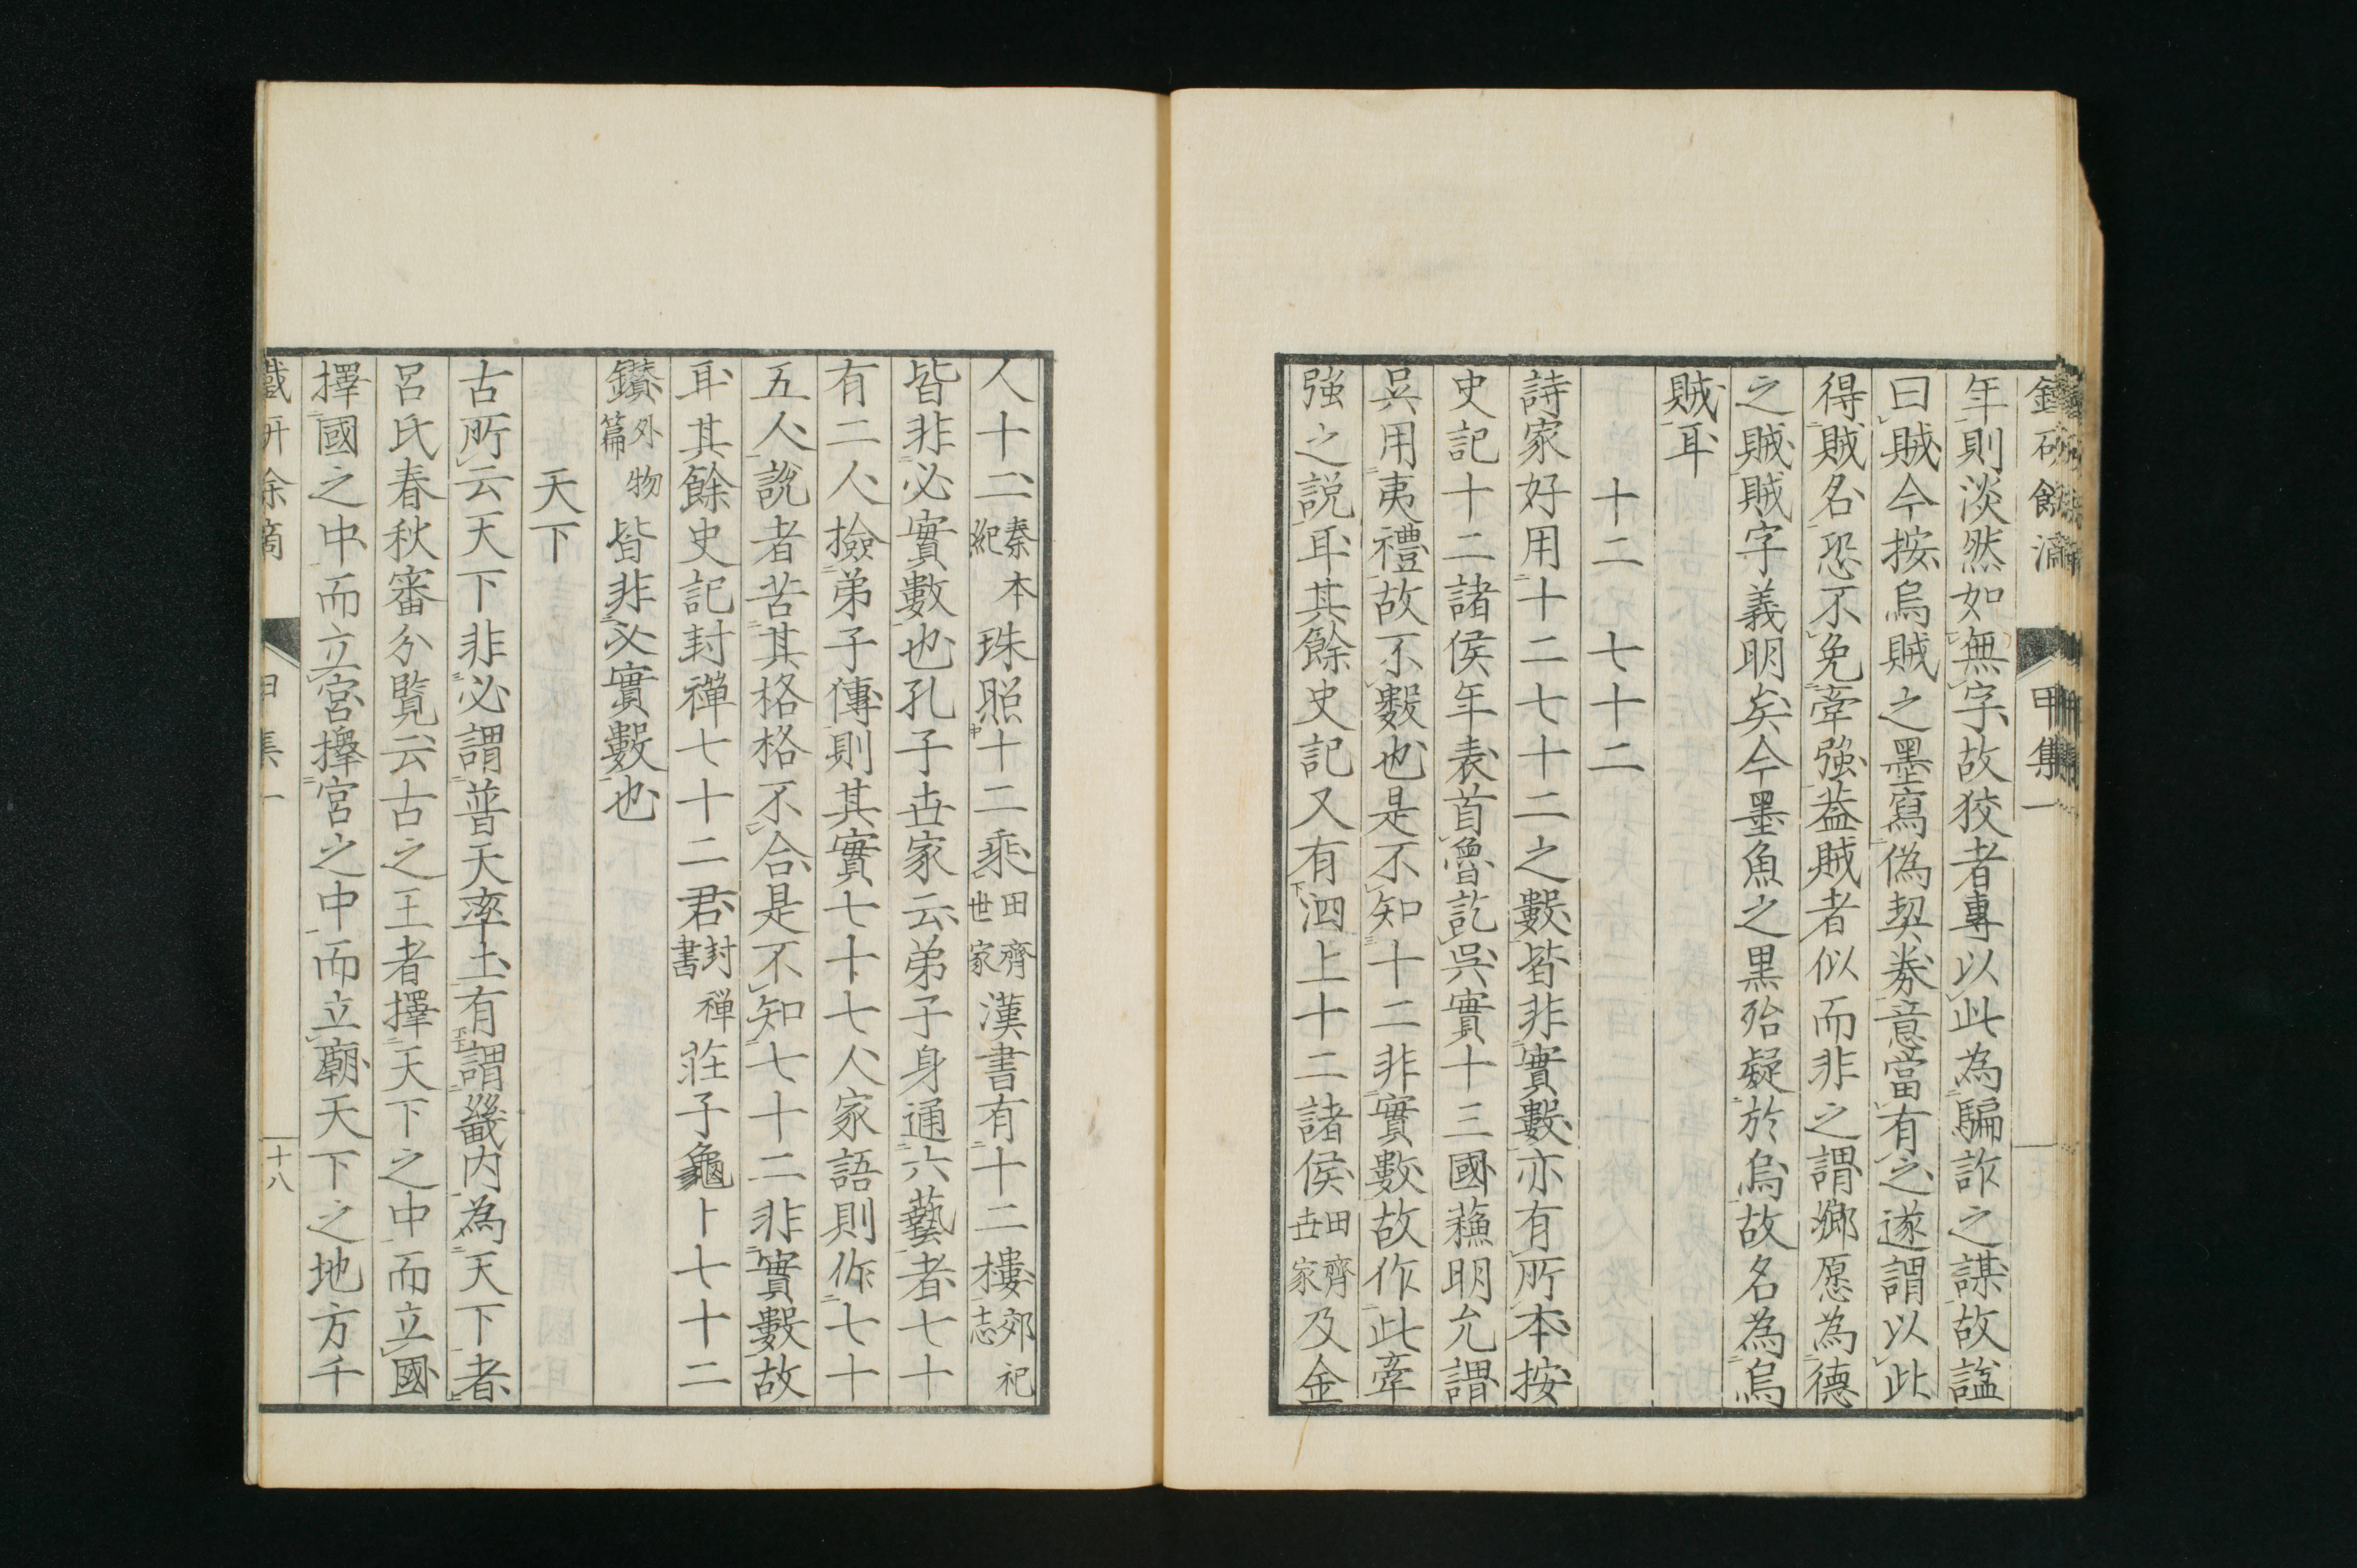 年則淡然如無字故狡者專以此為騙詐之謀故諡
曰賊今按烏賊之墨寫偽契券意當有之遂謂以此
得賊名恐不免牽強葢賊者似而非之謂鄉愿為德
之賊賊字義明矣今墨魚之黒殆疑於烏故名為烏
賊耳
十二 七十二
詩家好用十二七十二之數皆非實數亦有所本按
史記十二諸侯年表首魯訖吳實十三國蘓明允謂
吳用夷禮故不數也是不知十二非實數故作此牽
強之説耳其餘史記又有泗上十二諸侯田齊世家及金
人十二秦本紀珠照十二乘田齊世家漢書有十二樓郊祀志
皆非必實數也孔子世家云弟子身通六藝者七十
有二人撿弟子傳則其實七十七人家語則作七十
五人說者苦其格格不合是不知七十二非實數故
耳其餘史記封禪七十二君封禅書莊子龜卜七十二
鑽外物篇皆非必實數也
天下
古所云天下非必謂普天率土有謂畿内為天下者
呂氏春秋審分覧云古之王者擇天下之中而立國
擇國之中而立宮擇宮之中而立廟天下之地方千
甲集一
十八